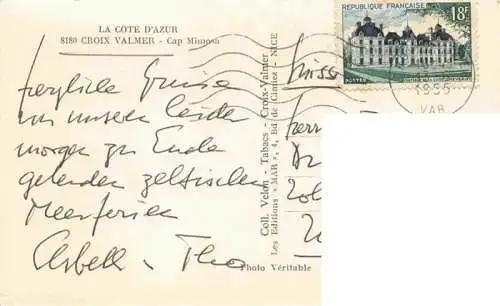 LA COTE D'AZUR
8180 CROIX VALMER - Cap Mimosa
herzliche Grüsse
von unseren leider
morgen zu Ende
gehenden zeltischen
Meerferien
Coll. Velon - Tabacs - Croix-Valmer
Les Editions "MAR", 4, Bd de Cimiez - NICE
Photo Véritable
RÉPUBLIQUE FRANÇAISE
18F
POSTES
1955
VAR
Suisse